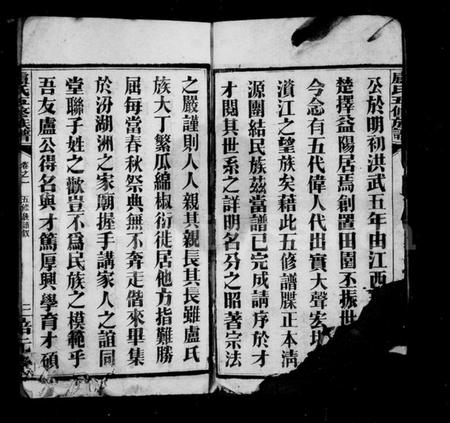 盧氏五修族譜
公於明初洪武五年由江西
楚擇益陽居焉創置田園丕振世
今念有五代偉人代出實大聲宏
濱江之望族矣藉此五修譜牒正本清
源團結民族玆當譜已完成請序於才
才閱其世系之詳明名分之昭著宗法
之嚴謹則人人親其親長其長雖盧氏
族大丁繁瓜綿椒衍徙居他方指難勝
屈每當春秋祭典無不奔走偕來畢集
於汾湖洲之家廟握手講家人之誼同
堂聯子姓之歡豈不為民族之模範乎
吾友盧公得名與才篤厚興學育才碩
盧氏五修族譜
卷之一
五修族譜敘
二